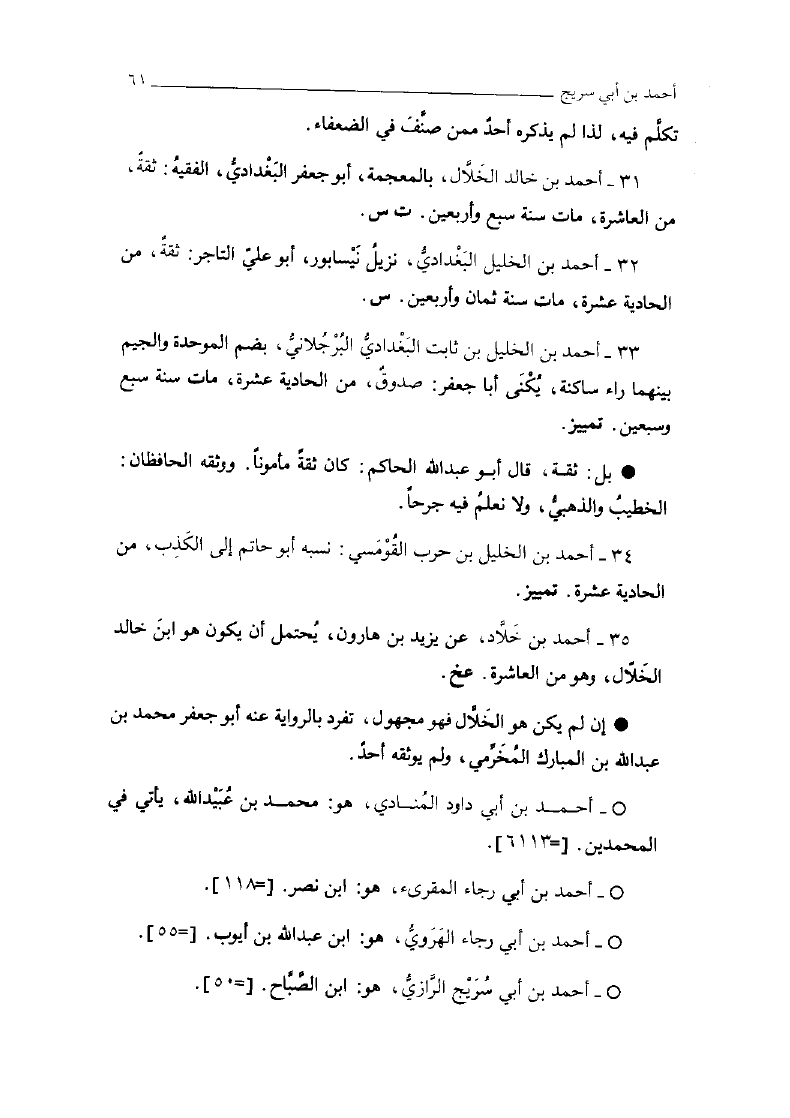 أحمد بن أبي سريج ٦١
تكلَّم فيه، لذا لم يذكره أحدٌ ممن صنَّفَ في الضعفاء.
٣١ ـ أحمد بن خالد الخَلَّال، بالمعجمة، أبو جعفر البَغْداديُّ، الفقيهُ: ثقةٌ،
من العاشرة، مات سنة سبع وأربعين. ت س.
٣٢ ـ أحمد بن الخليل البَغْداديُّ، نزيلُ نَيْسابور، أبو عليّ التاجر: ثقةٌ، من
الحادية عشرة، مات سنة ثمان وأربعين. س.
٣٣ ـ أحمد بن الخليل بن ثابت البَغْداديُّ البُرْجُلانيُّ، بضم الموحدة والجيم
بينهما راء ساكنة، يُكْنَى أبا جعفر: صدوقٌ، من الحادية عشرة، مات سنة سبع
وسبعين. تمييز.
● بل: ثقة، قال أبو عبدالله الحاكم: كان ثقةً مأموناً. ووثقه الحافظان:
الخطيبُ والذهبيُّ، ولا نعلمُ فيه جرحاً.
٣٤ ـ أحمد بن الخليل بن حرب القُوْمَسي: نسبه أبو حاتم إلى الكَذِب، من
الحادية عشرة. تمييز.
٣٥ ـ أحمد بن خَلَّاد، عن يزيد بن هارون، يُحتمل أن يكون هو ابنَ خالد
الخَلَّال، وهو من العاشرة. عخ.
● إن لم يكن هو الخَلَّال فهو مجهول، تفرد بالرواية عنه أبو جعفر محمد بن
عبدالله بن المبارك المُخَرِّمي، ولم يوثقه أحدٌ.
○ ـ أحمد بن أبي داود المُنادي، هو: محمد بن عُبَيْدالله، يأتي في
المحمدين. [=٦١١٣].
○ ـ أحمد بن أبي رجاء المقرىء، هو: ابن نصر. [=١١٨].
○ ـ أحمد بن أبي رجاء الهَرَويُّ، هو: ابن عبدالله بن أيوب. [=٥٥].
○ ـ أحمد بن أبي سُرَيْج الرَّازيُّ، هو: ابن الصَّبَّاح. [=٥٠].